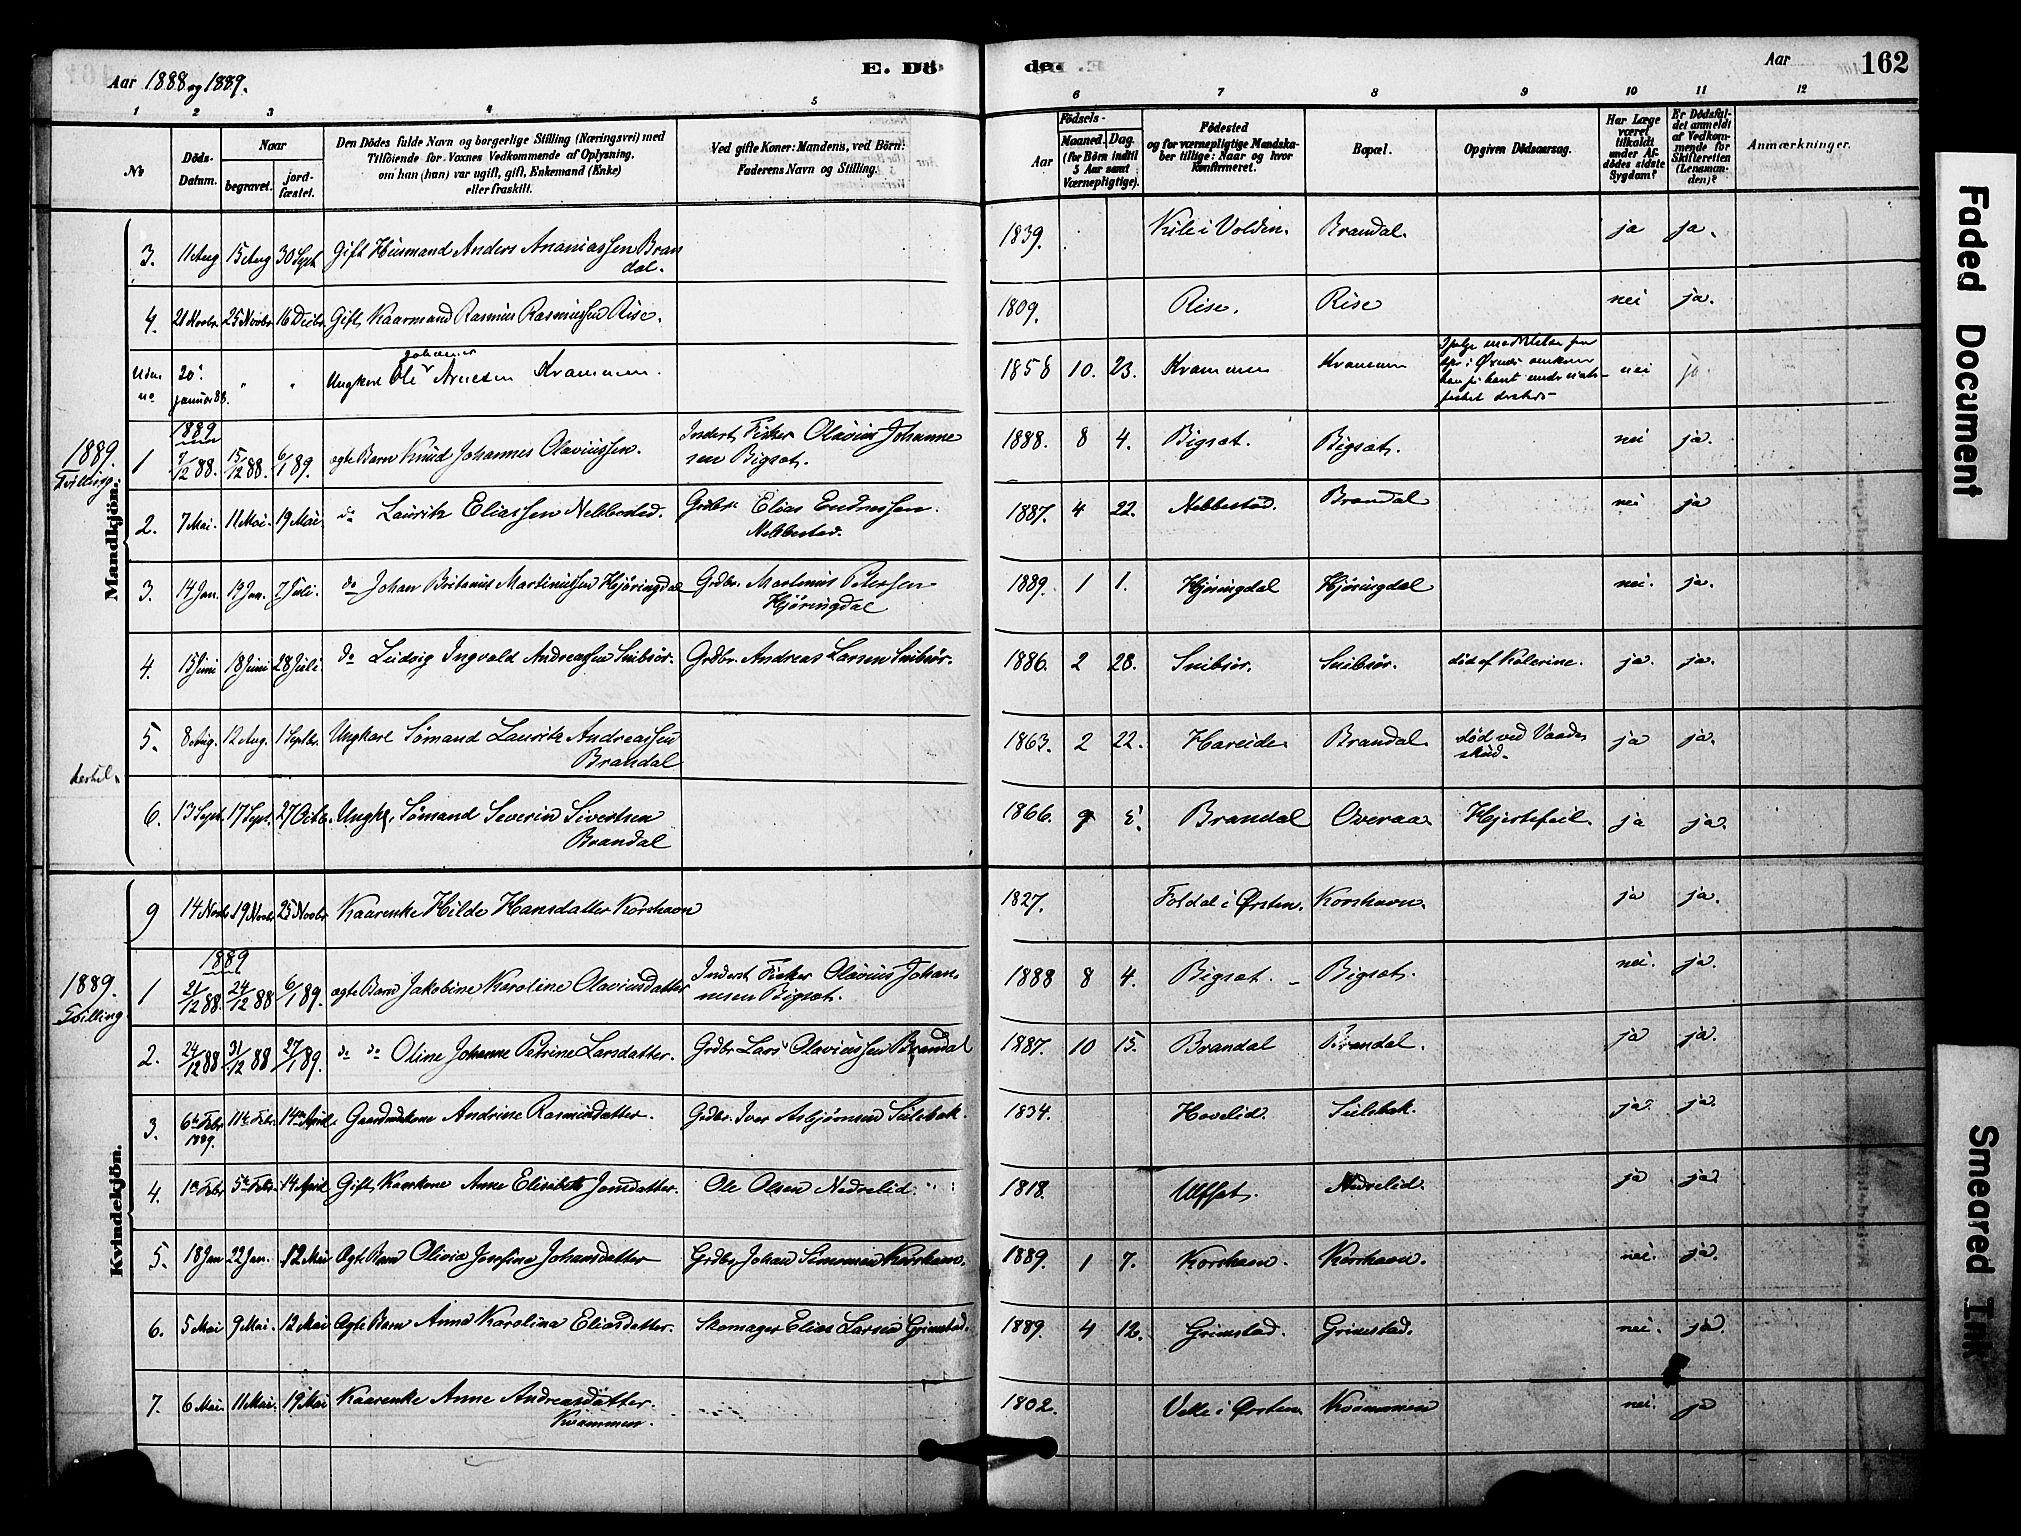 Aar 1888 og 1889.
E. Dö
de.
Aar
162
1 2 3 4 5 6 7 8 9 10 11 12
No
Døds-
Datum.
Naar
begravet.
jord-
fæstet.
Den Dödes fulde Navn og borgerlige Stilling (Næringsvei) med
Tilföiende for Voxnes Vedkommende af Oplysning,
om han (hun) var ugift, gift, Enkemand (Enke)
eller fraskilt.
Ved gifte Koner: Mandens, ved Börn:
Faderens Navn og Stilling.
Födsels-
Aar
Maaned.
Dag.
(for Børn indtil
5 Aar samt
Værnepligtige).
Födested
og for værnepligtige Mandska-
ber tillige: Naar og hvor
konfirmeret.
Bopæl.
Opgiven Dødsaarsag.
Har Læge
været
tilkaldt
under Af-
dødes sidste
Sygdom?
Er Dødsfal-
det anmeldt
af Vedkom-
mende for
Skifteretten
(Lensman-
den)?
Anmærkninger.
Mandkjön.
3. 11 Aug 15 Aug 30 Sept Gift Husmand Anders Ananiassen Bran
dal.
1839. Kile i Volden. Brandal. ja ja.
4. 21 Novbr 25 Novbr. 16 Decbr. Gift Kaarmand Rasmus Rasmussen Rise.
1809. Rise. Rise nei ja.
Uden
no
20
januar 88. " " Ungkarl Ole Johannes Arnesen Krammen.
1858 10. 23. Krammen Krammen nei ja
1889.
Tvilling.
1889
1 7/12 88. 15/12 88. 6/1 89. ægte Barn Knud Johannes Olaviussen. Inderst, Fisker Olavius Johanne
sen Bigsæt.
1888. 8 4. Bigsæt. Bigsæt. nei ja.
2. 7 Mai. 11 Mai. 19 Mai do Lauritz Eliassen Nebbestad. Grdbr. Elias Endressen
Nebbestad.
1887. 4 22. Nebbestad. Brandal nei ja
3. 14 Jan. 19 Jan. 7 Juli. do Johan Britanus Martinussen Hjøringdal Grdbr. Martinus Petersen
Hjøringdal
1889. 1 1. Hjøringdal Hjøringdal nei. ja.
4. 15 Juni 18 Juni 28 Juli do Ludvig Ingvald Andreassen Snibsør. Grdbr. Andreas Larsen Snibsør.
1886. 2 28. Snibsør. Snibsør. død af Kolerine. ja. ja.
5. 8 Aug. 12 Aug. 1 Septbr. Ungkarl Sømand Lauritz Andreassen
Brandal
1863. 2 22. Hareide Brandal død ved Vaade
skud. ja ja.
6. 13 Sept. 17 Sept. 27 Octb. Ungk. Sømand Severin Sivertsen
Brandal
1866. 9 Brandal Overaa Hjertefeil. ja ja.
Kvindekjön.
9 14 Novb. 19 Novbr. 25 Novbr Kaarenke Hilde Hansdatter Korshavn
1827. Foldal i Ørsten. Korshavn. ja ja.
1889.
Tvilling.
1889
1 21/12 88. 24/12 88 6/1 89. ægte Barn Jakobine Karoline Olaviusdatter Inderst Fisker Olavius Johan
nesen Bigsæt.
1888 8 4. Bigsæt. Bigsæt. nei. ja.
2. 24/12 88 31/12 88 27/1 89. do do Oline Johanne Petrine Larsdatter. Grdbr Lars Olaviussen Brandal
1887. 10 15. Brandal Brandal. ja ja.
3. 6te Febr.
1889. 11te Febr. 14de April Gaardmkone Andrine Rasmusdatter. Grdbr. Iver Asbjørnsen Sulebak.
1834. Hovelid. Sulebak. ja. ja.
4. 1te Febr 5te Febr. 14 April Gift Kaarkone Anne Elisabeth Jonsdatter. Ole Olsen Nedrelid.
1818. Ulfsæt. Nedrelid. ja ja.
5. 18 Jan 22 Jan. 12 Mai Ægte Barn Olivia Josefine Johansdatter Grdbr. Johan Simonsen Korshavn.
1889. 1 7. Korshavn. Korshavn. nei. ja.
6. 5 Mai 9 Mai. 12 Mai Ægte Barn Anna Karolina Eliasdatter. Skomager Elias Larsen Grimstad.
1889. 4 12. Grimstad. Grimstad. nei. ja.
7. 6 Mai. 11 Mai. 19 Mai Kaarenke Anne Andreasdatter
Krammen.
1802. Velle i Ørsten. Krammen nei. ja
Faded Document
Smeared Ink